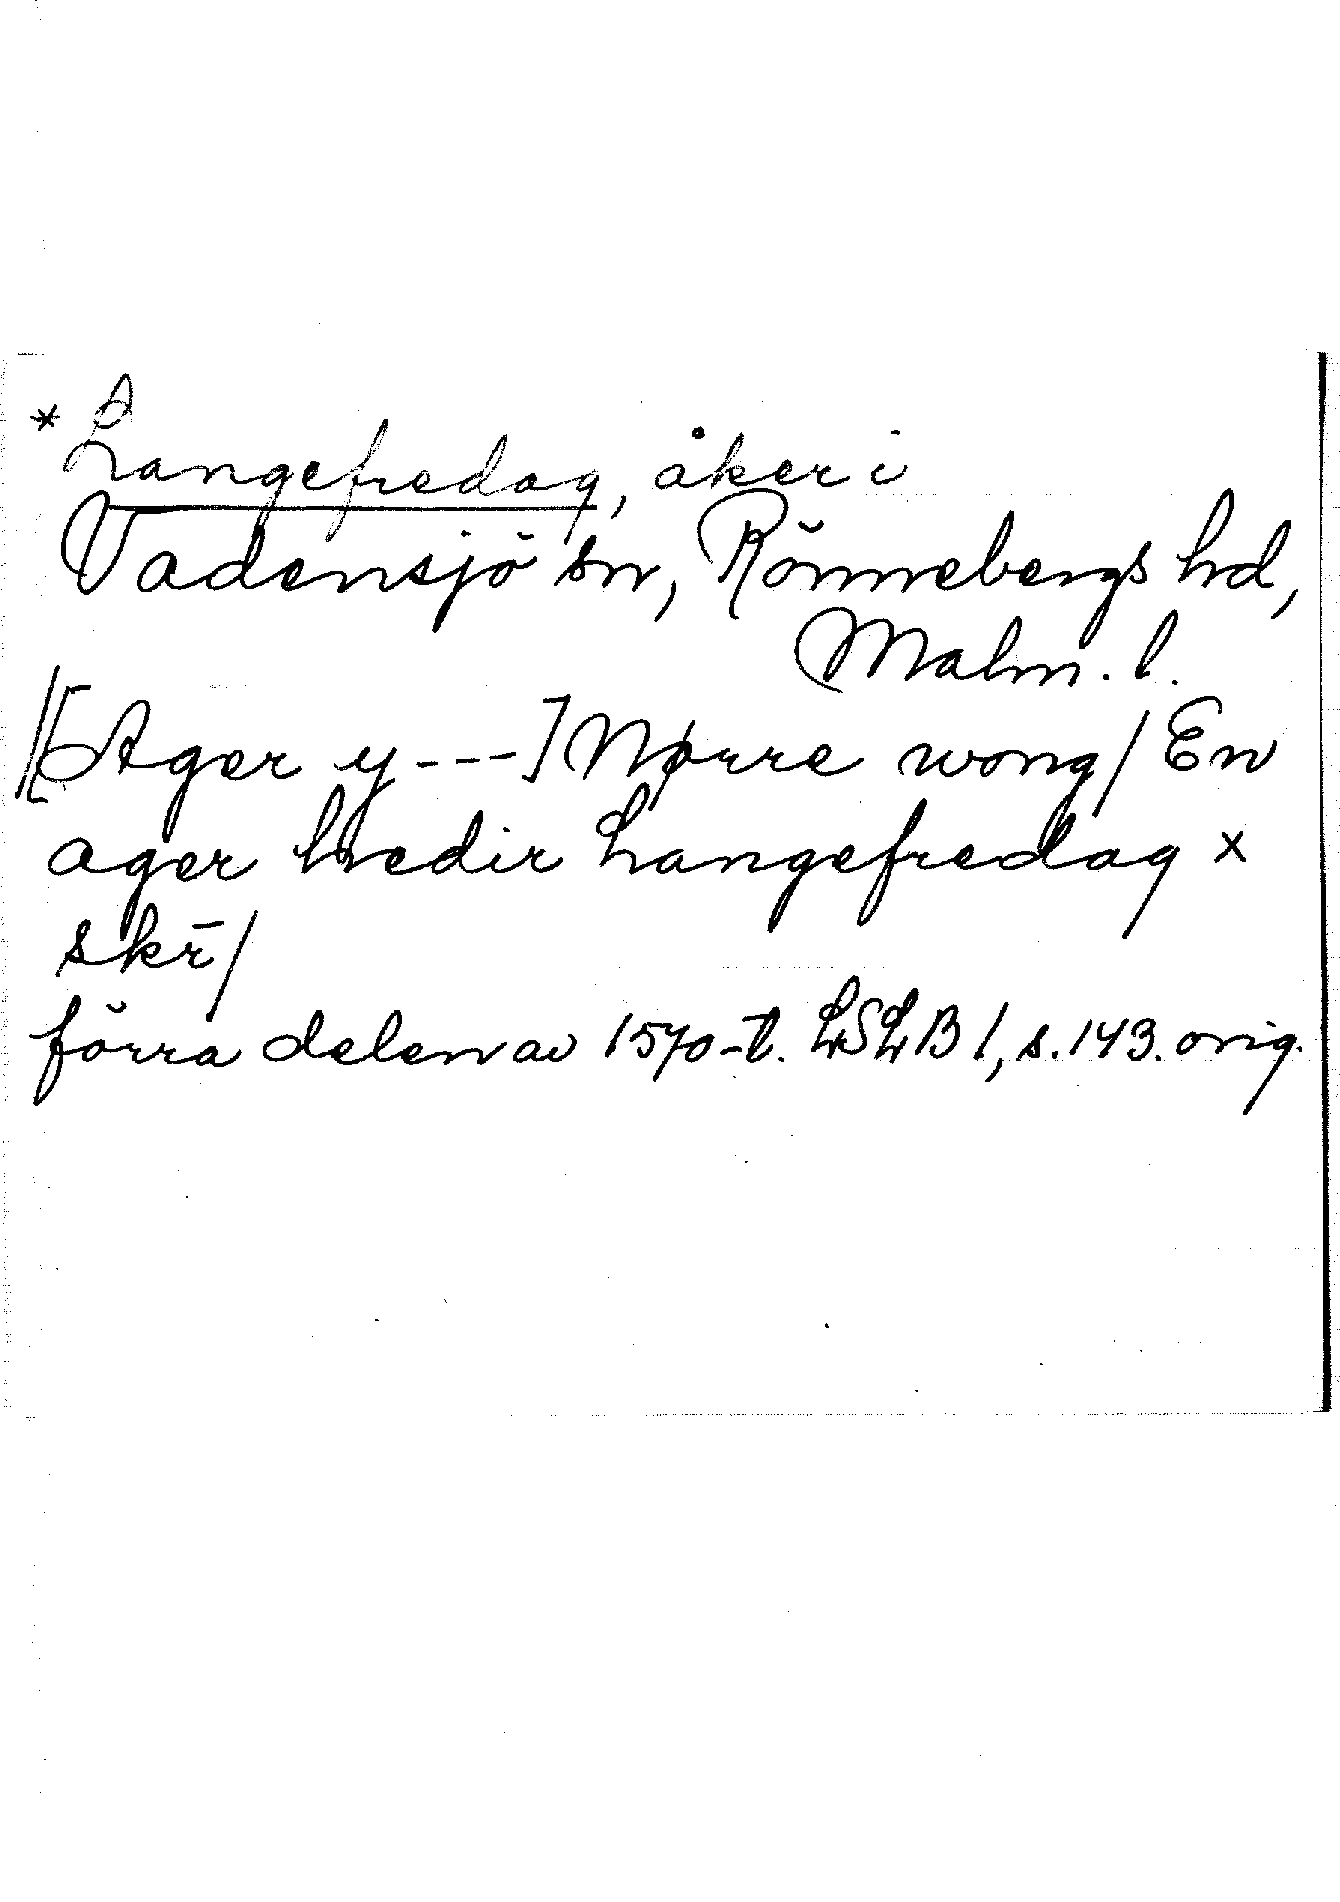 * Langefredag, åker i
Vadensjö sn, Rönnebergs hd,
Malm. l.
//[Ager y---] Nørre wong/ En
ager hedir Langefredag x
skr̄/
förra delen av 1570-t. LSLB 1, s. 143. orig.